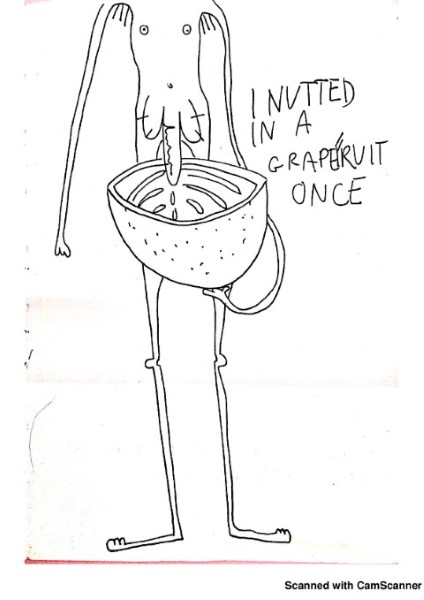 I NUTTED
IN A
GRAPEFRUIT
ONCE
Scanned with CamScanner